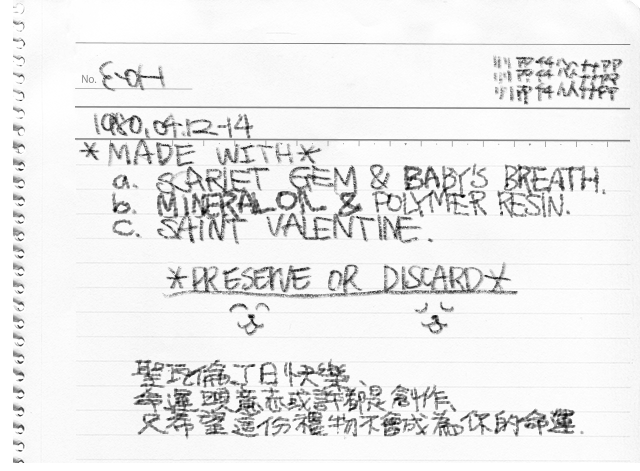 No. E-OH
1980.04.12-14
*MADE WITH*
a. SCARLET GEM & BABY'S BREATH.
b. MINERAL OIL & POLYMER RESIN.
c. SAINT VALENTINE.
*PRESERVE OR DISCARD*
聖瓦倫丁日快樂、
命運與意志或許都是創作、
只希望這份禮物不會成為你的命運.